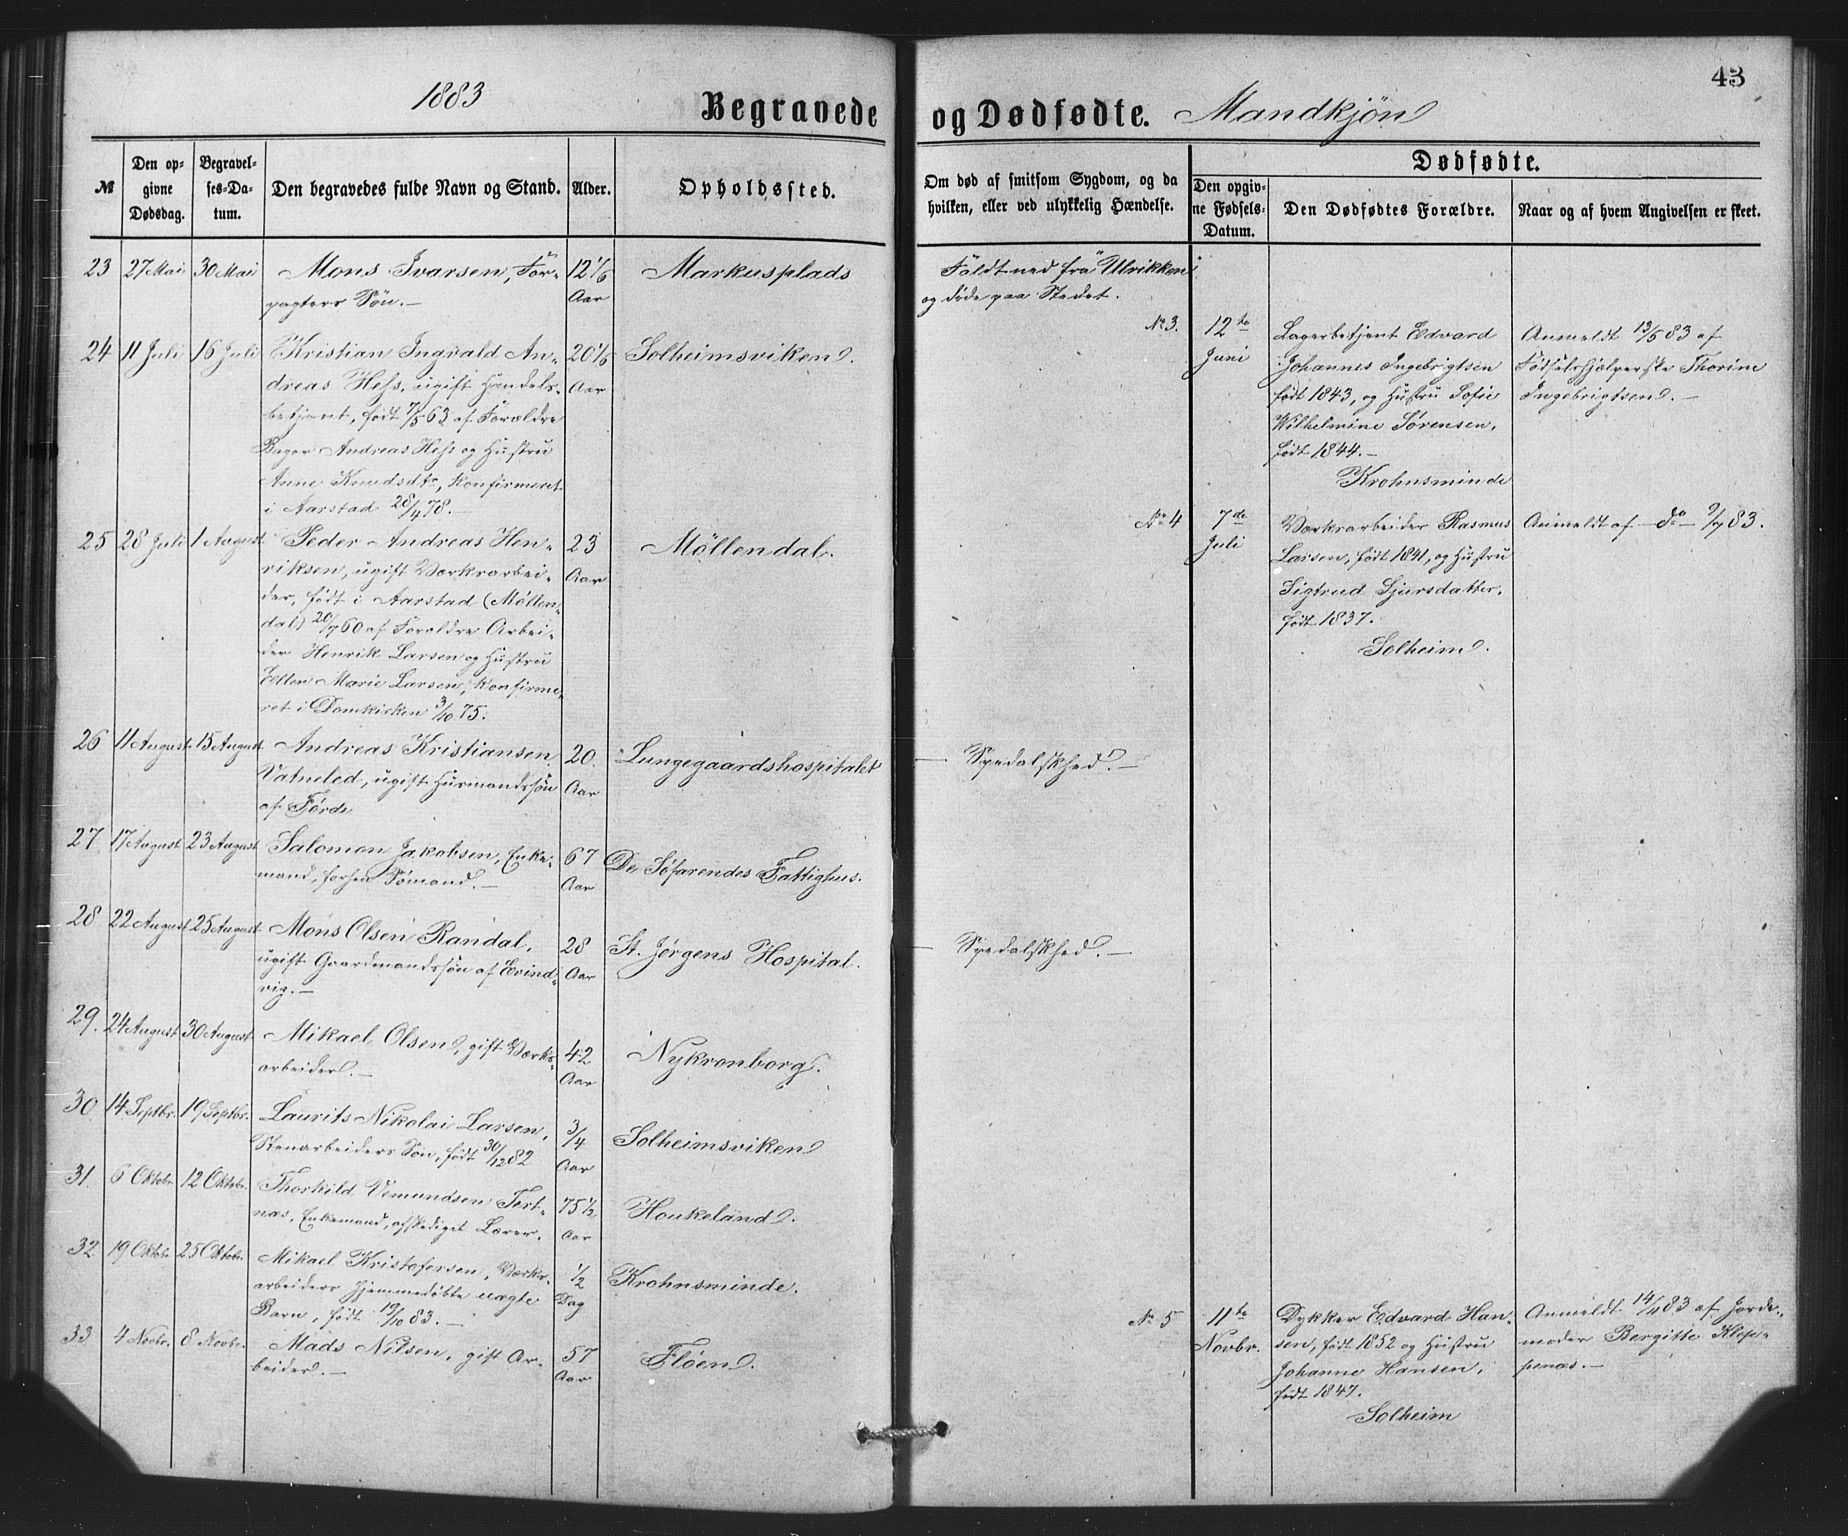 1883
Begravede og Dødfødte. Mandkjøn
43
№
Den opgivne Dødsdag.
Begravelses-Datum.
Den begravedes fulde Navn og Stand.
Alder.
Opholdssted.
Om død af smitsom Sygdom, og da hvilken, eller ved ulykkelig Hændelse.
Dødfødte.
Den opgivne Fødsels-Datum.
Den Dødfødtes Forældre.
Naar og af hvem Angivelsen er skeet.
23 27 Mai 30 Mai Mons Ivarsen, For- 12 1/6 Markusplads Faldt ned fra Ulrikken
pagters Søn.— Aar og døde paa Stedet.
24 11 Juli 16 Juli Kristian Ingvald An- 20 1/6 Solheimsviken.
dreas Hess, ugift Handels- Aar
betjent, født 7/5 63 af Forældre
Bager Andreas Hess og Hustru
Anne Knudsdtr, konfirmeret
i Aarstad 28/4 78.—
25 28 Juli 1 August Peder Andreas Hen- 23 Möllendal.
riksen, ugift Værksarbei- Aar
der, født i Aarstad (Möllen-
dal) 20/7 60 af Forældre Arbei-
der Henrik Larsen og Hustru
Ellen Marie Larsen, konfirme-
ret i Domkirken 3/10 75.
26 11 August 15 August Andreas Kristiansen 20 Lungegaardshospitalet — Spedalskhed.—
Vatneled, ugift Husmandssøn Aar
af Førde
27. 17 August 23 August Salomon Jakobsen, Enke- 67 De Söfarendes Fattighus.
mand, forhen Sømand.— Aar
28 22 August 25 August Mons Olsen Randal, 28 St. Jørgens Hospital. — Spedalskhed.—
ugift Gaardmandssøn af Evind- Aar
vig.—
29. 24 August 30 August Mikael Olsen, gift Værks- 42 Nykronborg.
arbeider.— Aar
30. 14 Septbr. 19 Septbr. Laurits Nikolai Larsen, 3/4 Solheimsviken
Stenarbeiders Søn, født 30/12 82 Aar
31. 6 Oktobr. 12 Oktobr. Thorkild Vemundsen Tert- 75 1/2 Houkeland.
næs, Enkemand, afskediget Lærer. Aar
32 19 Oktobr. 25 Oktobr. Mikael Kristofersen, Værks- 1/2 Krohnsminde.
arbeiders hjemmedøbte uægte Dag
Barn, født 19/10 83.—
33 4 Novbr. 8 Novbr. Mads Nilsen, gift Ar- 57 Flöen.
beider.— Aar
No 3. 12te Lagerbetjent Edvard Anmeldt 13/6 83 af
Juni Johannes Ingebrigtsen Fødselshjælperske Thorine
født 1843, og Hustru Sofie Ingebrigtsen.—
Wilhelmine Sørensen,
født 1844.—
Krohnsminde
No 4 7de Værksarbeider Rasmus Anmeldt af —do— 9/7 83.
Juli Larsen, født 1841, og Hustru
Sigtrud Sjursdatter,
født 1837.
Solheim.
No 5 11te Dykker Edvard Han- Anmeldt 14/11 83 af Jorde-
Novbr. sen, født 1852 og Hustru moder Bergitte Klep-
Johanne Hansen, penæs.—
født 1847.
Solheim